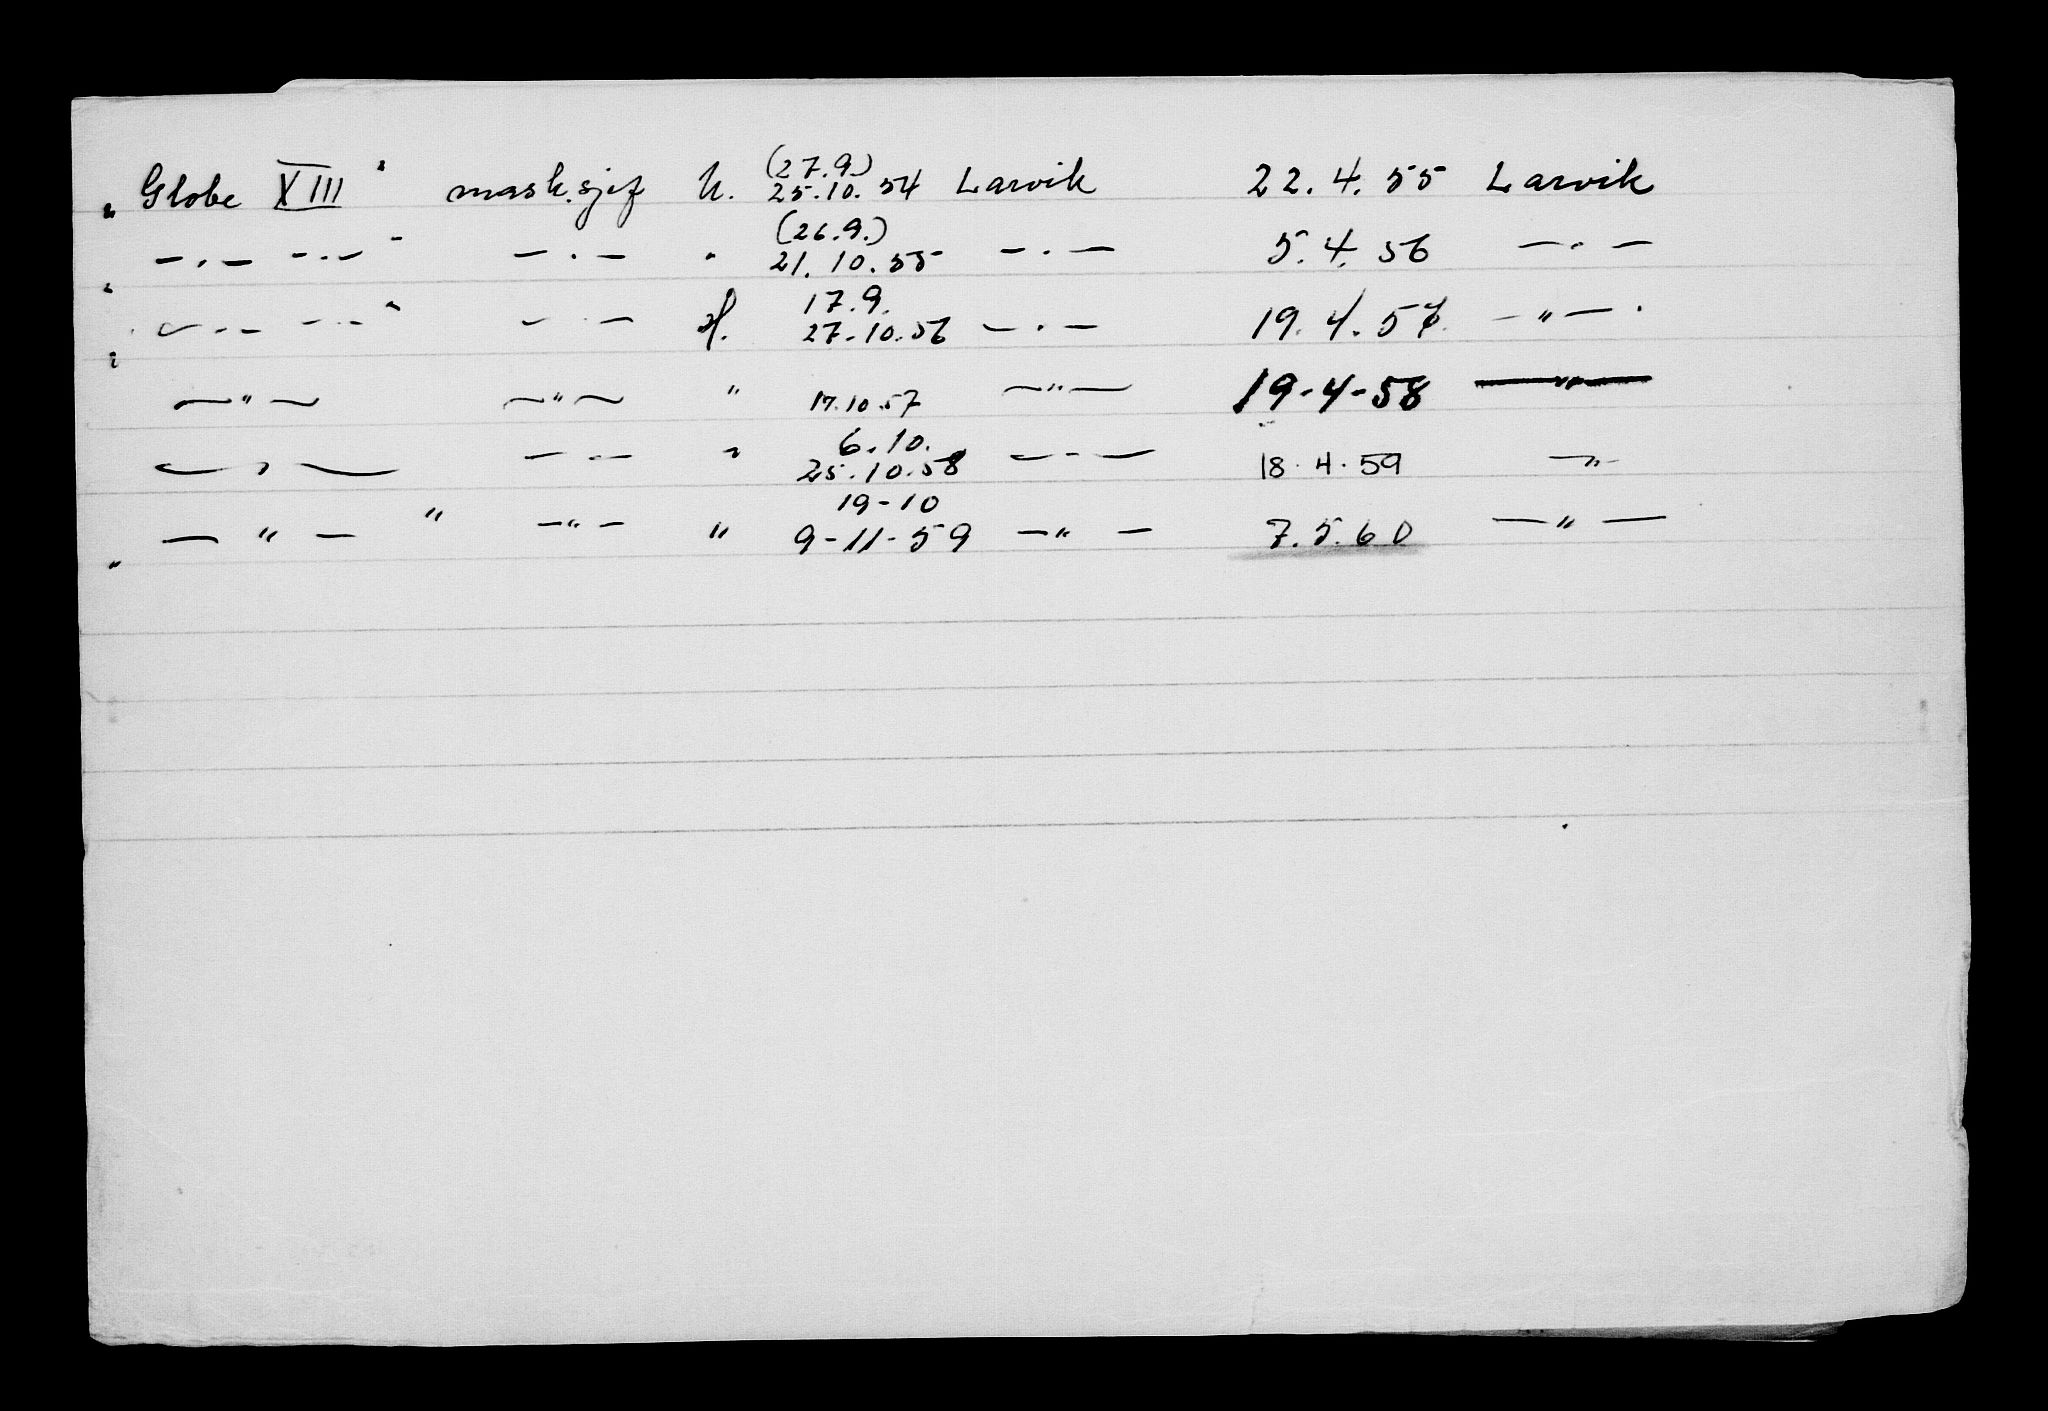 „Globe XIII" mask.sjef U. (27.9.) 25.10.54 Larvik 22.4.55 Larvik
„ — . — — . — " — . — " (26.9.) 21.10.55 — . — 5.4.56 — . —
„ — . — — . — " — . — H. 17.9. 27.10.56 — . — 19.4.57 — " —
— " — — " — " 17.10.57 — " — 19-4-58 — " —
— " — — " — " 6.10. 25.10.58 — " — 18.4.59 — " —
„ — " — " — " — " 19-10 9-11-59 — " — 7.5.60 — " —